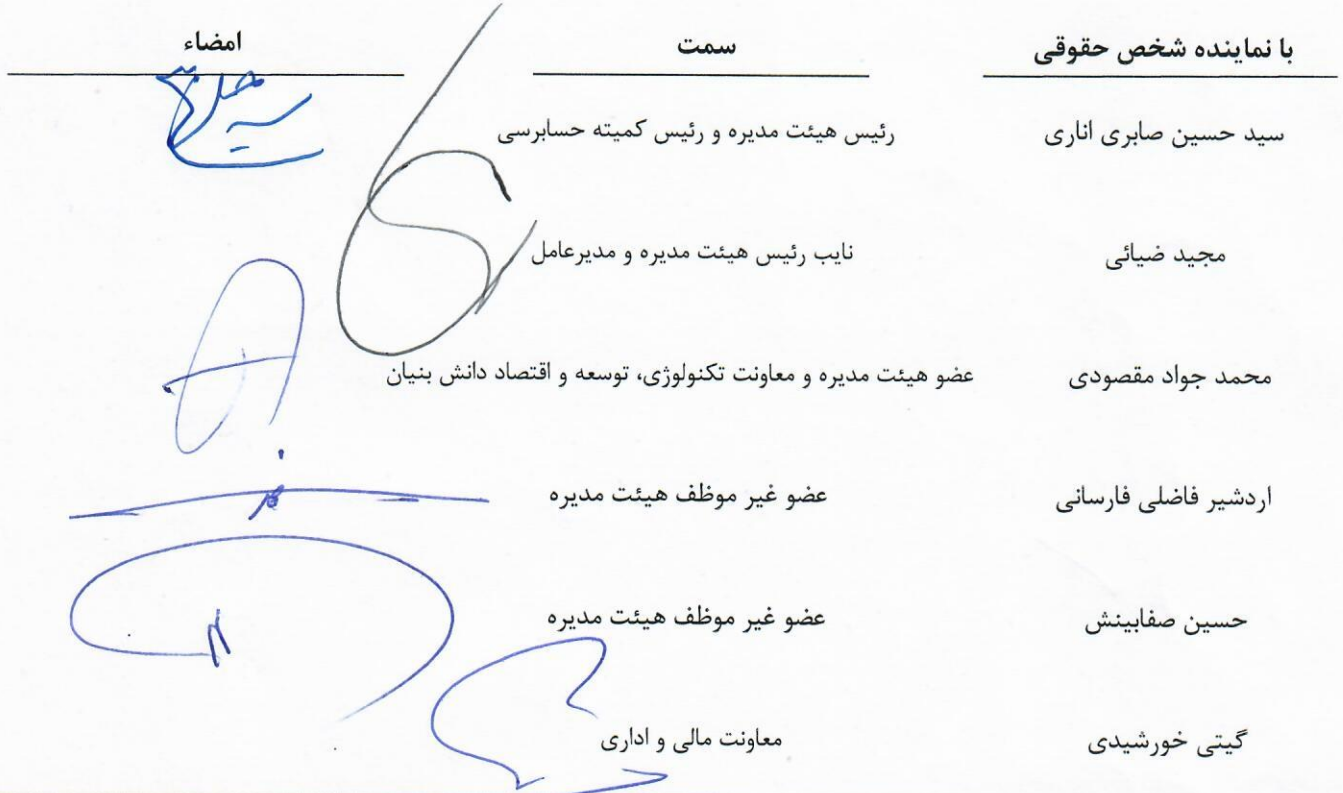 با نماینده شخص حقوقی سمت امضاء
سید حسین صابری اناری رئیس هیئت مدیره و رئیس کمیته حسابرسی
مجید ضیائی نایب رئیس هیئت مدیره و مدیرعامل
محمد جواد مقصودی عضو هیئت مدیره و معاونت تکنولوژی، توسعه و اقتصاد دانش بنیان
اردشیر فاضلی فارسانی عضو غیر موظف هیئت مدیره
حسین صفابینش عضو غیر موظف هیئت مدیره
گیتی خورشیدی معاونت مالی و اداری